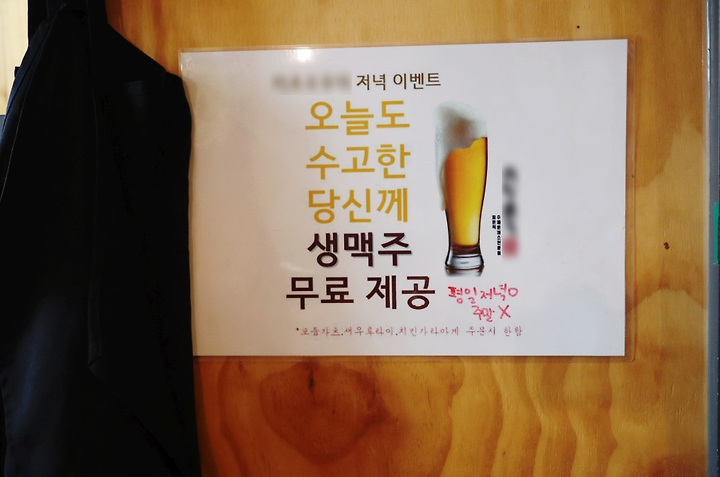 저녁 이벤트
오늘도
수고한
당신께
생맥주
무료 제공
평일저녁O
주말 X
*모듬가츠,새우후라이,치킨가라아게 주문시 한함